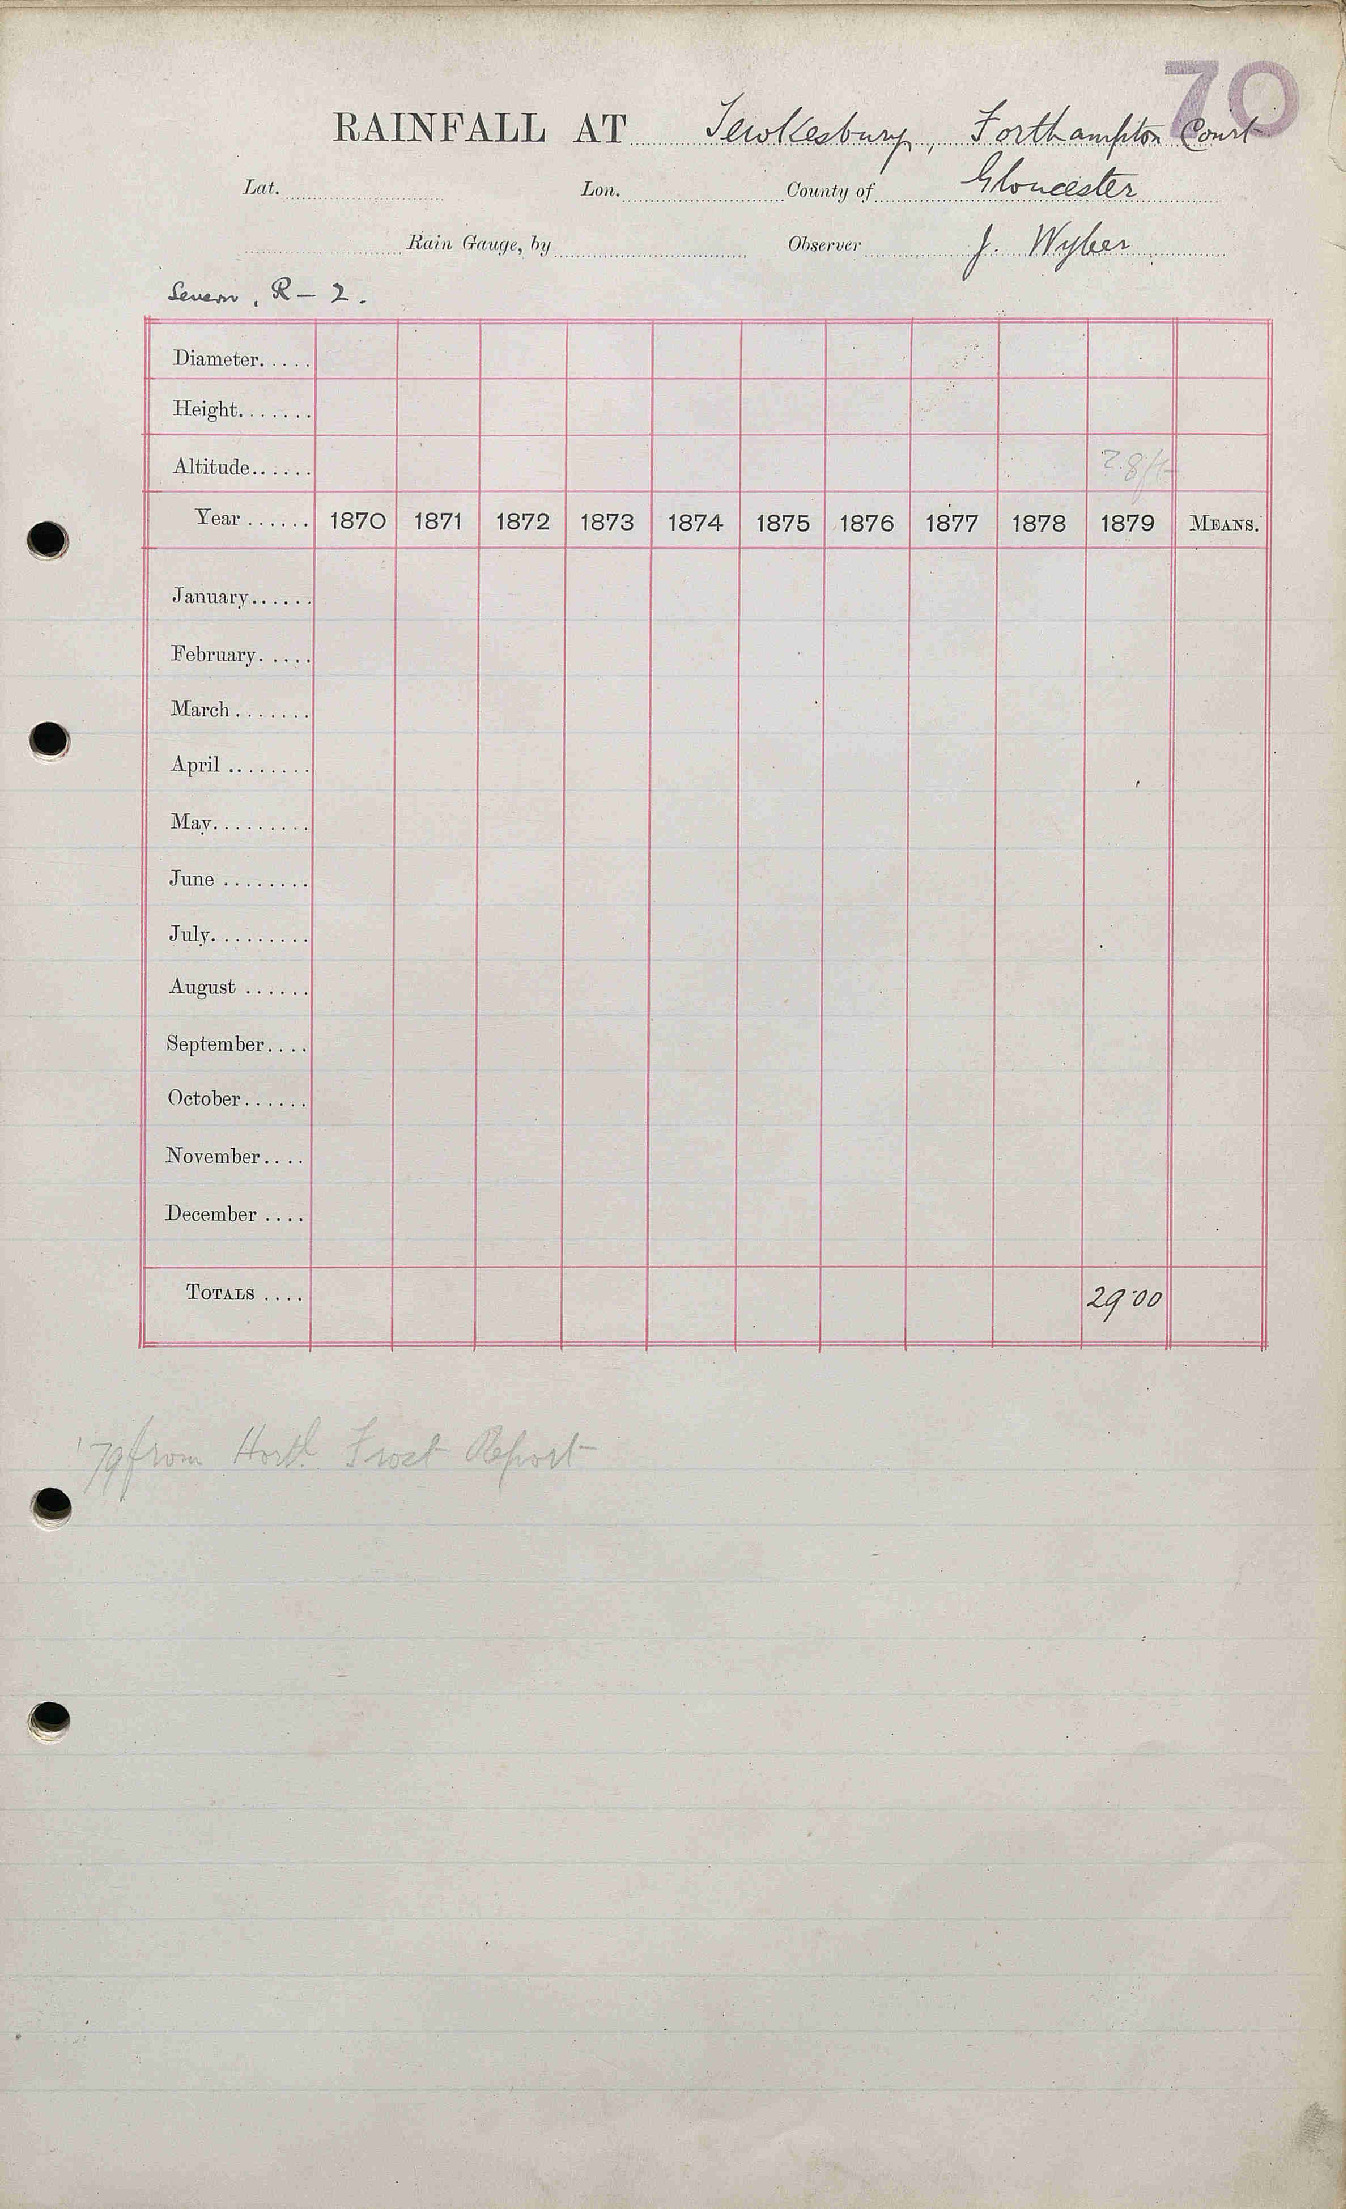 70
RAINFALL AT Tewkesbury, Forthampton Court
Lat. Lon. County of Gloucester
Rain Gauge, by Observer J. Wyber
Severn, R – 2.
Diameter.....
Height.......
Altitude...... 28ft
Year ...... 1870 1871 1872 1873 1874 1875 1876 1877 1878 1879 MEANS.
January......
February.....
March.......
April ........
May.........
June ........
July.........
August ......
September....
October......
November....
December ....
TOTALS .... 29·00
'79 from Hortl. Frost Report